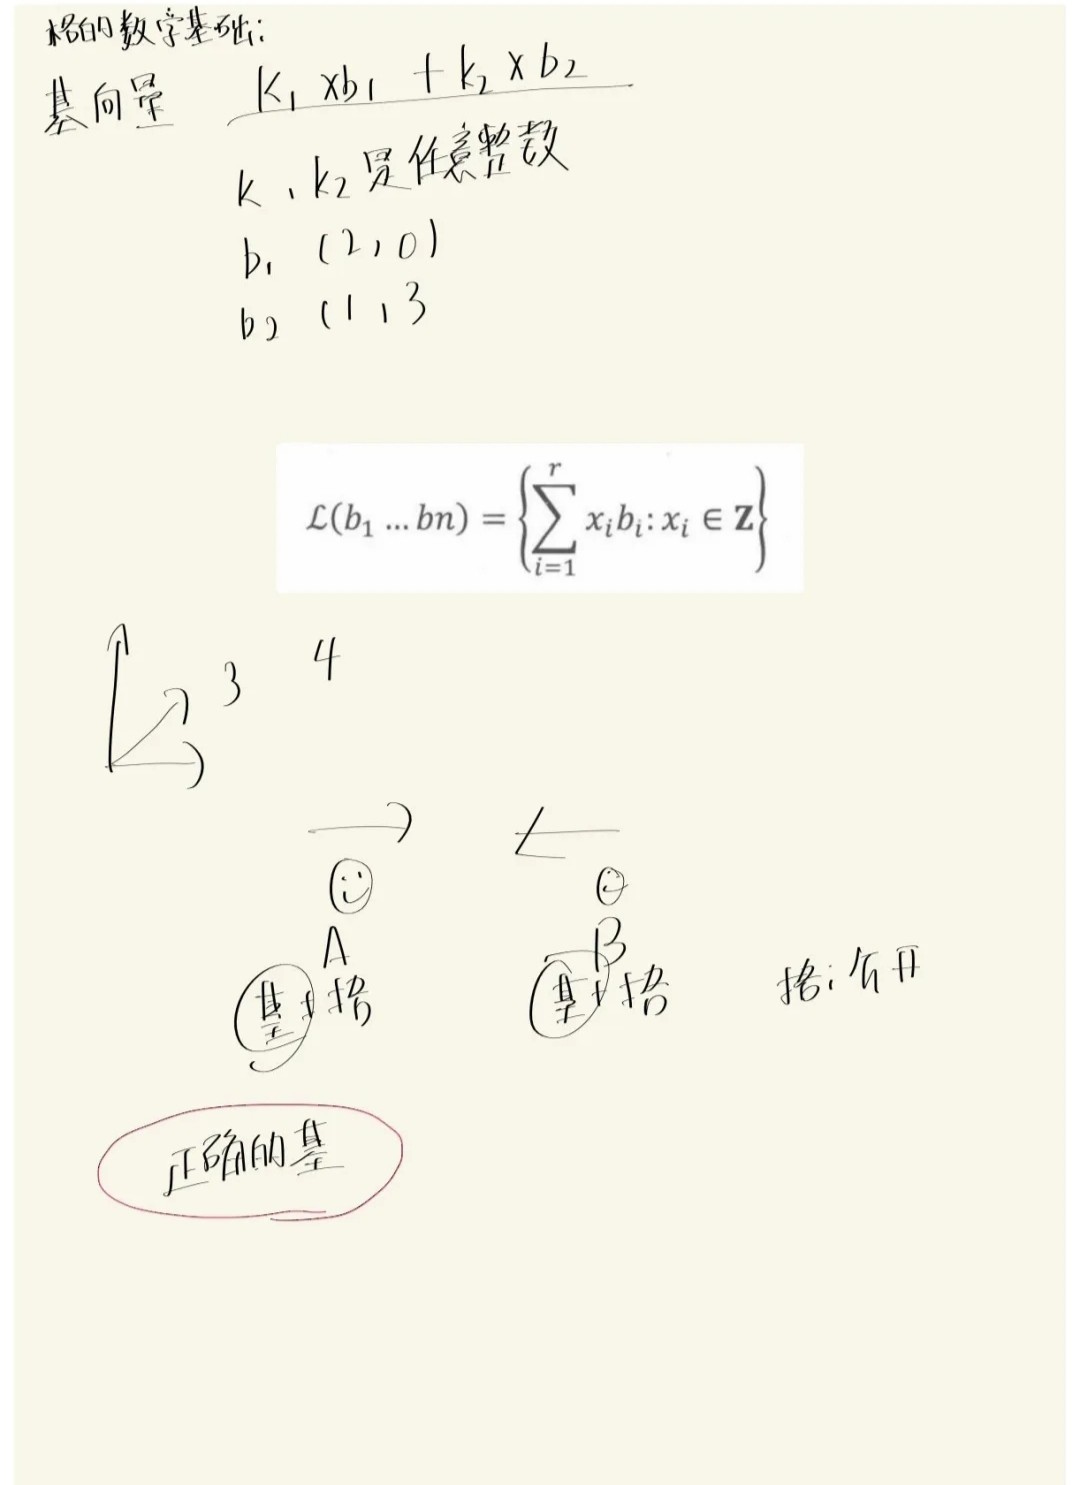 格的数学基础:
基向量 k₁ xb₁ + k₂ x b₂
k, k₂是任意整数
b₁ (2,0)
b₂ (1,3
ℒ(b₁ ... bn) = {∑ᵢ₌₁ʳ xᵢbᵢ: xᵢ ∈ Z}
3 4
A B
基 格 基 格 格:
正确的基